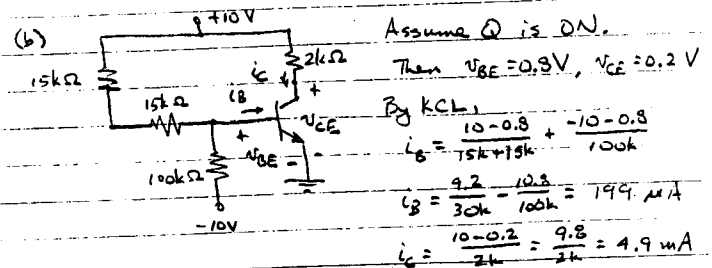 (b)
+10V
15kΩ
2kΩ
iC
+
15kΩ
iB
vCE
+
vBE
-
-
100kΩ
-10V
Assume Q is ON.
Then vBE = 0.8V, vCE = 0.2 V
By KCL,
iB = (10-0.8)/(15k+15k) + (-10-0.8)/100k
iB = 9.2/30k - 10.8/100k = 199 μA
iC = (10-0.2)/2k = 9.8/2k = 4.9 mA